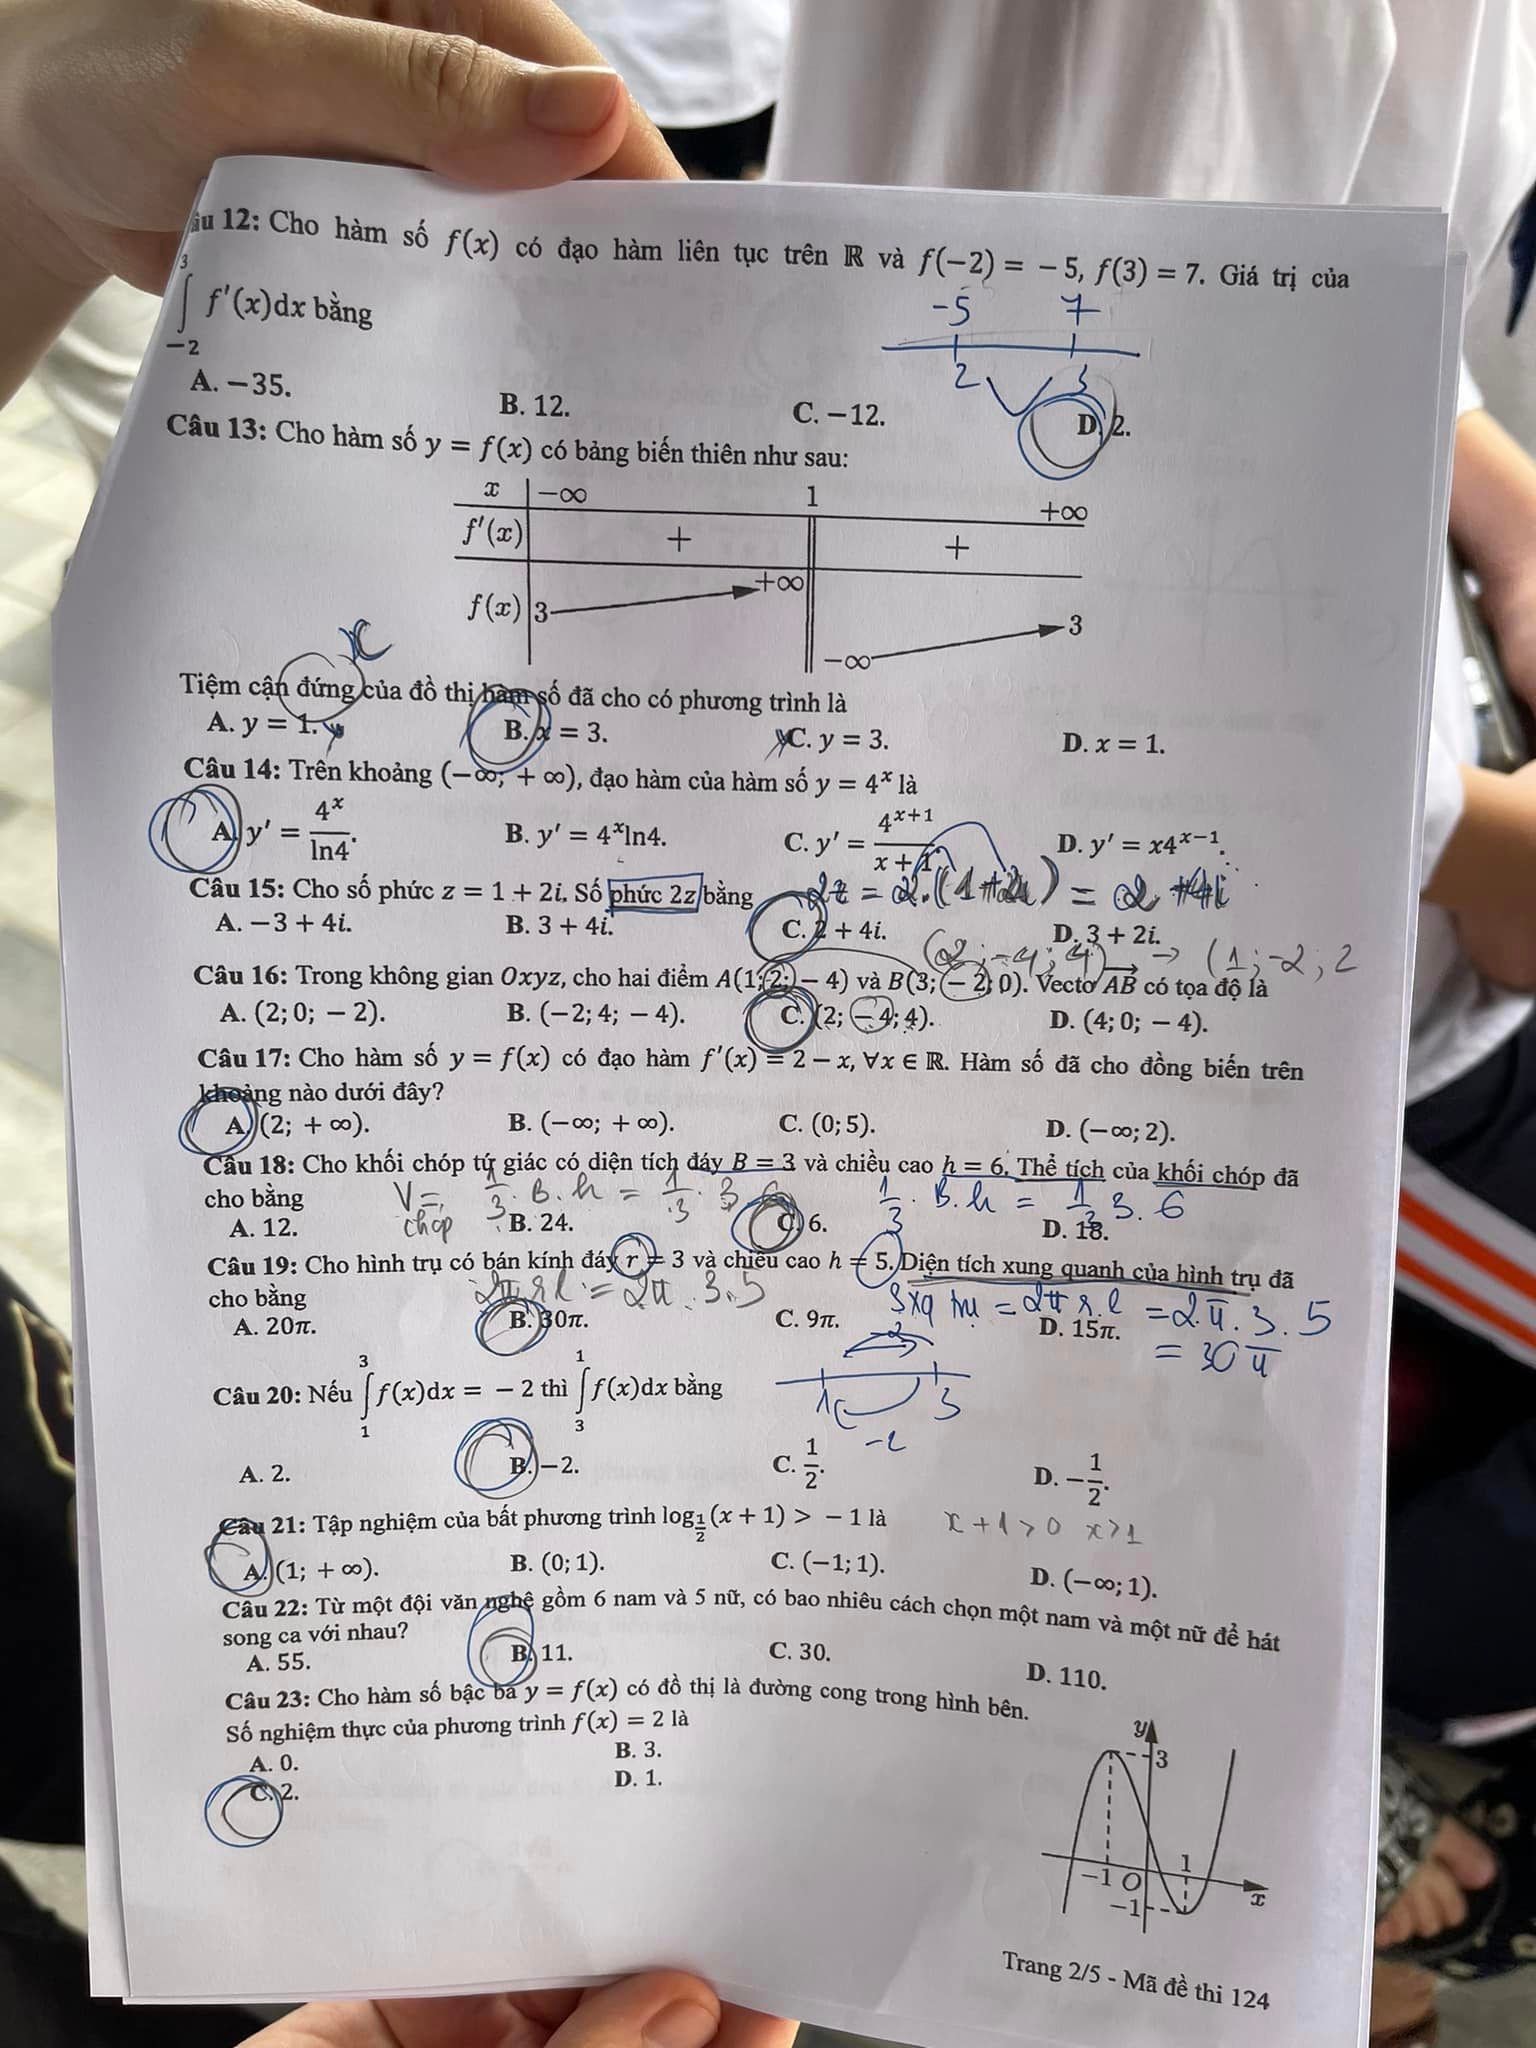 12: Cho hàm số f(x) có đạo hàm liên tục trên ℝ và f(−2) = −5, f(3) = 7. Giá trị của
∫_{−2}^{3} f'(x)dx bằng
-5 7
2 3
A. −35. B. 12. C. −12. D. 2.
Câu 13: Cho hàm số y = f(x) có bảng biến thiên như sau:
x −∞ 1 +∞
f'(x) + +
f(x) 3 +∞ −∞ 3
x
Tiệm cận đứng của đồ thị hàm số đã cho có phương trình là
A. y = 1. B. x = 3. C. y = 3. D. x = 1.
Câu 14: Trên khoảng (−∞; +∞), đạo hàm của hàm số y = 4^x là
A. y' = 4^x/ln4. B. y' = 4^x ln4. C. y' = 4^{x+1}/(x + 1). D. y' = x4^{x−1}.
Câu 15: Cho số phức z = 1 + 2i. Số phức 2z bằng
2z = 2.(1+2i) = 2 + 4i
A. −3 + 4i. B. 3 + 4i. C. 2 + 4i. D. 3 + 2i.
(2; -4; 4) → (1; -2; 2
Câu 16: Trong không gian Oxyz, cho hai điểm A(1; 2; −4) và B(3; −2; 0). Vectơ AB có tọa độ là
A. (2; 0; −2). B. (−2; 4; −4). C. (2; −4; 4). D. (4; 0; −4).
Câu 17: Cho hàm số y = f(x) có đạo hàm f'(x) = 2 − x, ∀x ∈ ℝ. Hàm số đã cho đồng biến trên
khoảng nào dưới đây?
A. (2; +∞). B. (−∞; +∞). C. (0; 5). D. (−∞; 2).
Câu 18: Cho khối chóp tứ giác có diện tích đáy B = 3 và chiều cao h = 6. Thể tích của khối chóp đã
cho bằng
V chóp = 1/3 . B.h = 1/3 . 3
1/3 . B.h = 1/3 3. 6
A. 12. B. 24. C. 6. D. 18.
Câu 19: Cho hình trụ có bán kính đáy r = 3 và chiều cao h = 5. Diện tích xung quanh của hình trụ đã
cho bằng
2π r l = 2π . 3. 5
= 2π r. l = 2.π. 3. 5
= 30π
A. 20π. B. 30π. C. 9π. D. 15π.
Câu 20: Nếu ∫_{1}^{3} f(x)dx = −2 thì ∫_{3}^{1} f(x)dx bằng
1 3
-2
A. 2. B. −2. C. 1/2. D. −1/2.
Câu 21: Tập nghiệm của bất phương trình log_{1/2}(x + 1) > −1 là
x + 1 > 0 x > 1
A. (1; +∞). B. (0; 1). C. (−1; 1). D. (−∞; 1).
Câu 22: Từ một đội văn nghệ gồm 6 nam và 5 nữ, có bao nhiêu cách chọn một nam và một nữ để hát
song ca với nhau?
A. 55. B. 11. C. 30. D. 110.
Câu 23: Cho hàm số bậc ba y = f(x) có đồ thị là đường cong trong hình bên.
Số nghiệm thực của phương trình f(x) = 2 là
A. 0. B. 3.
C. 2. D. 1.
y
3
−1 O 1 x
−1
Trang 2/5 - Mã đề thi 124